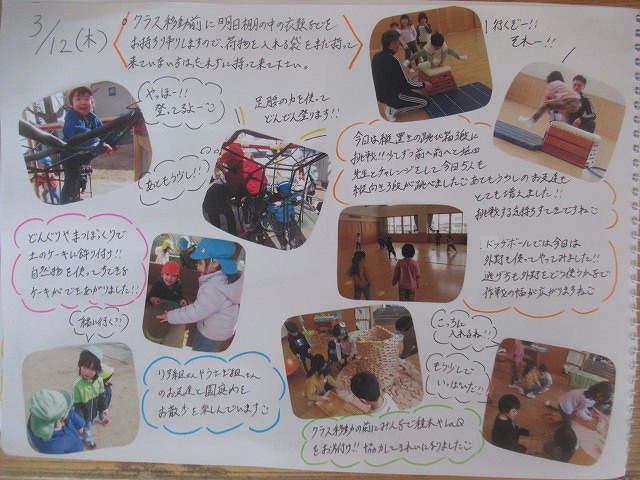 3/12(木)
クラス移動前に明日棚の中の衣類などを
お持ち帰りしますので、荷物を入れる袋をまだ持って
来ていない方はたれちに持って来て下さい。
行くぞー!!
それー!!
やっほー!!
登ってるよーこ
足腰の力を使って
どんどん登ります!!
あともう少し!!
今日は縦置きの跳び箱3段に
挑戦!!少しずつ前へ前へと
先生とチャレンジをして今日5人も
縦向き3段が跳べました あともう少しのお友達も
とても増えました!!
挑戦する気持ちすてきですね
どんぐりやまつぼっくりで
土のケーキに飾り付け!!
自然物を使ってすてきな
ケーキができあがりました!!
ドッチボールでは今日は
外野も使ってやってみました!!
逃げ方も外野をどう使うかで
作戦の幅が広がりますね
一緒に行く?!
りす組さんやうさぎ組さん
のお友達と園庭内を
お散歩を楽しんでいます
こっちに
入れるね!!
もう少しで
いっぱいだ!!
クラス移動の前にみんなで積木やLaQ
をお片付け!!協力してきれいになりました